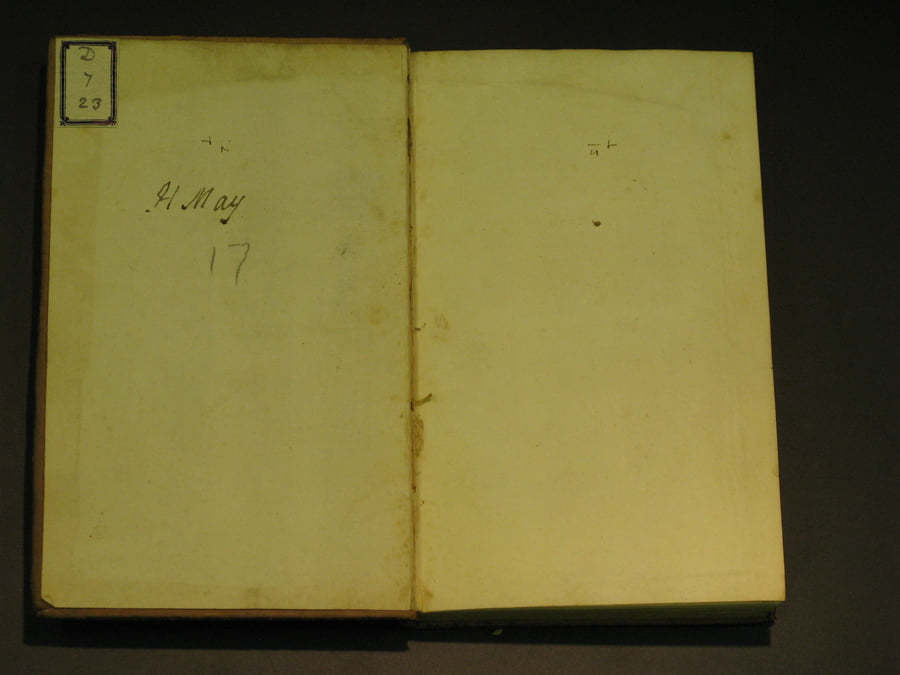 D
7
23
H May
17